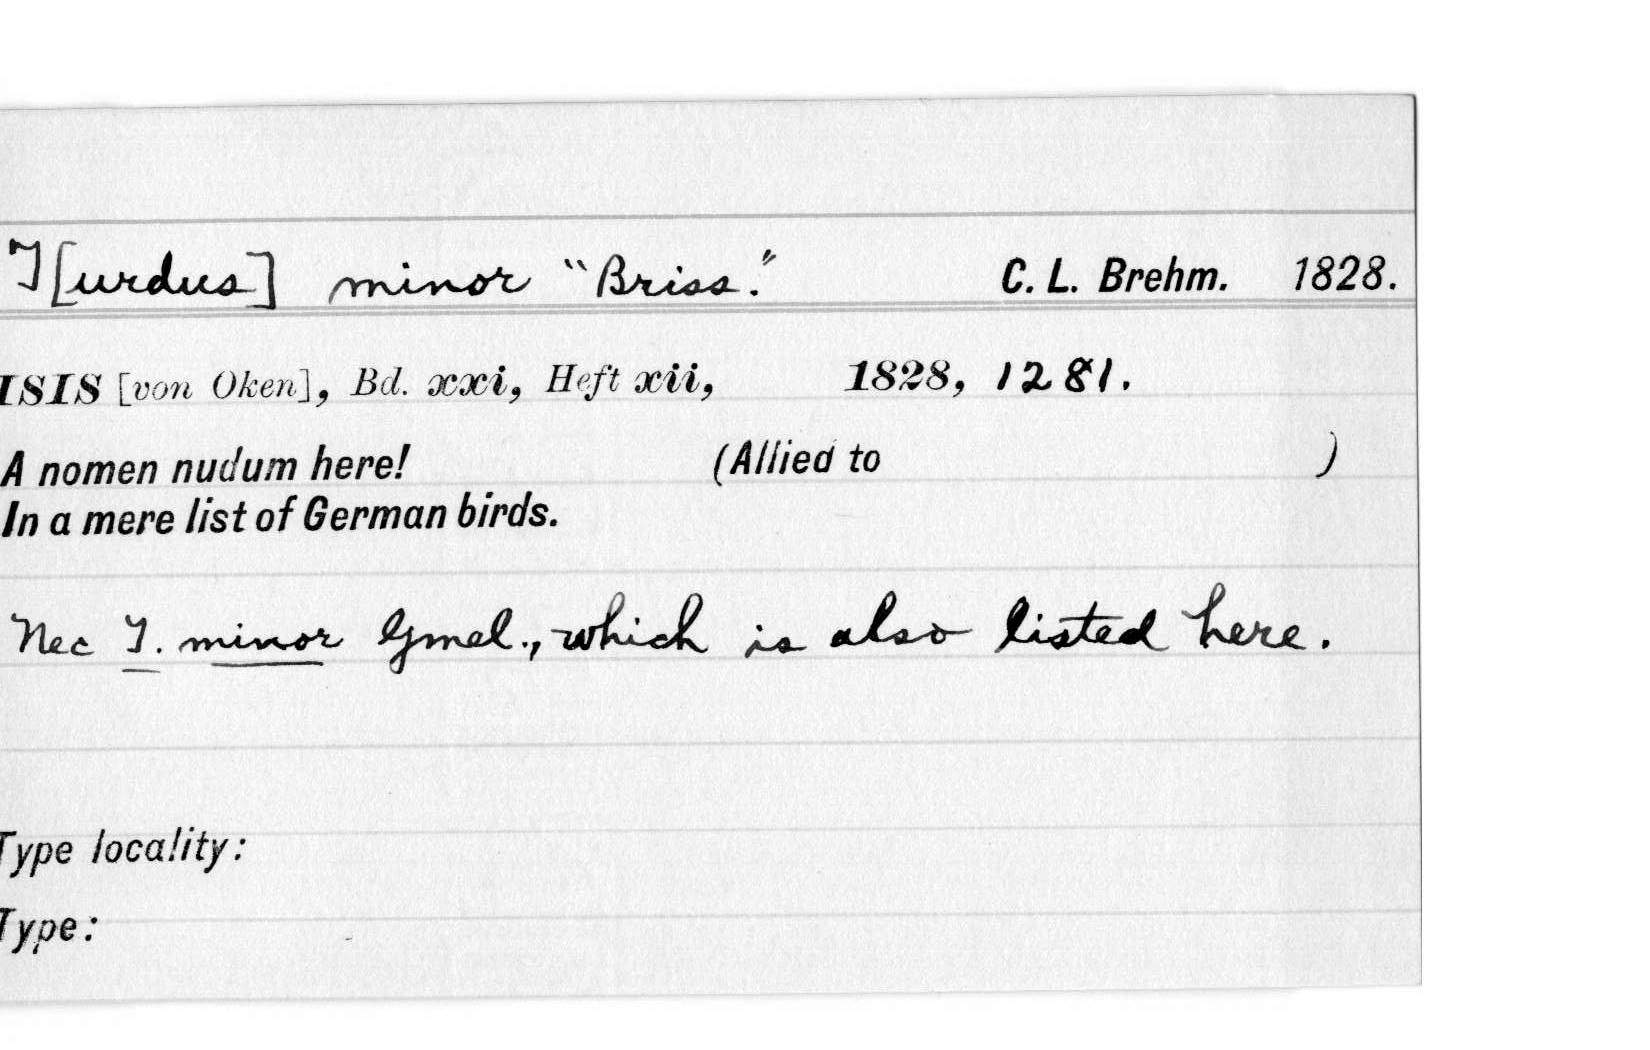 T[urdus] minor "Briss." C. L. Brehm. 1828.
ISIS [von Oken], Bd. xxi, Heft xii, 1828, 1281.
A nomen nudum here! (Allied to )
In a mere list of German birds.
Nec T. minor Gmel., which is also listed here.
Type locality:
Type: